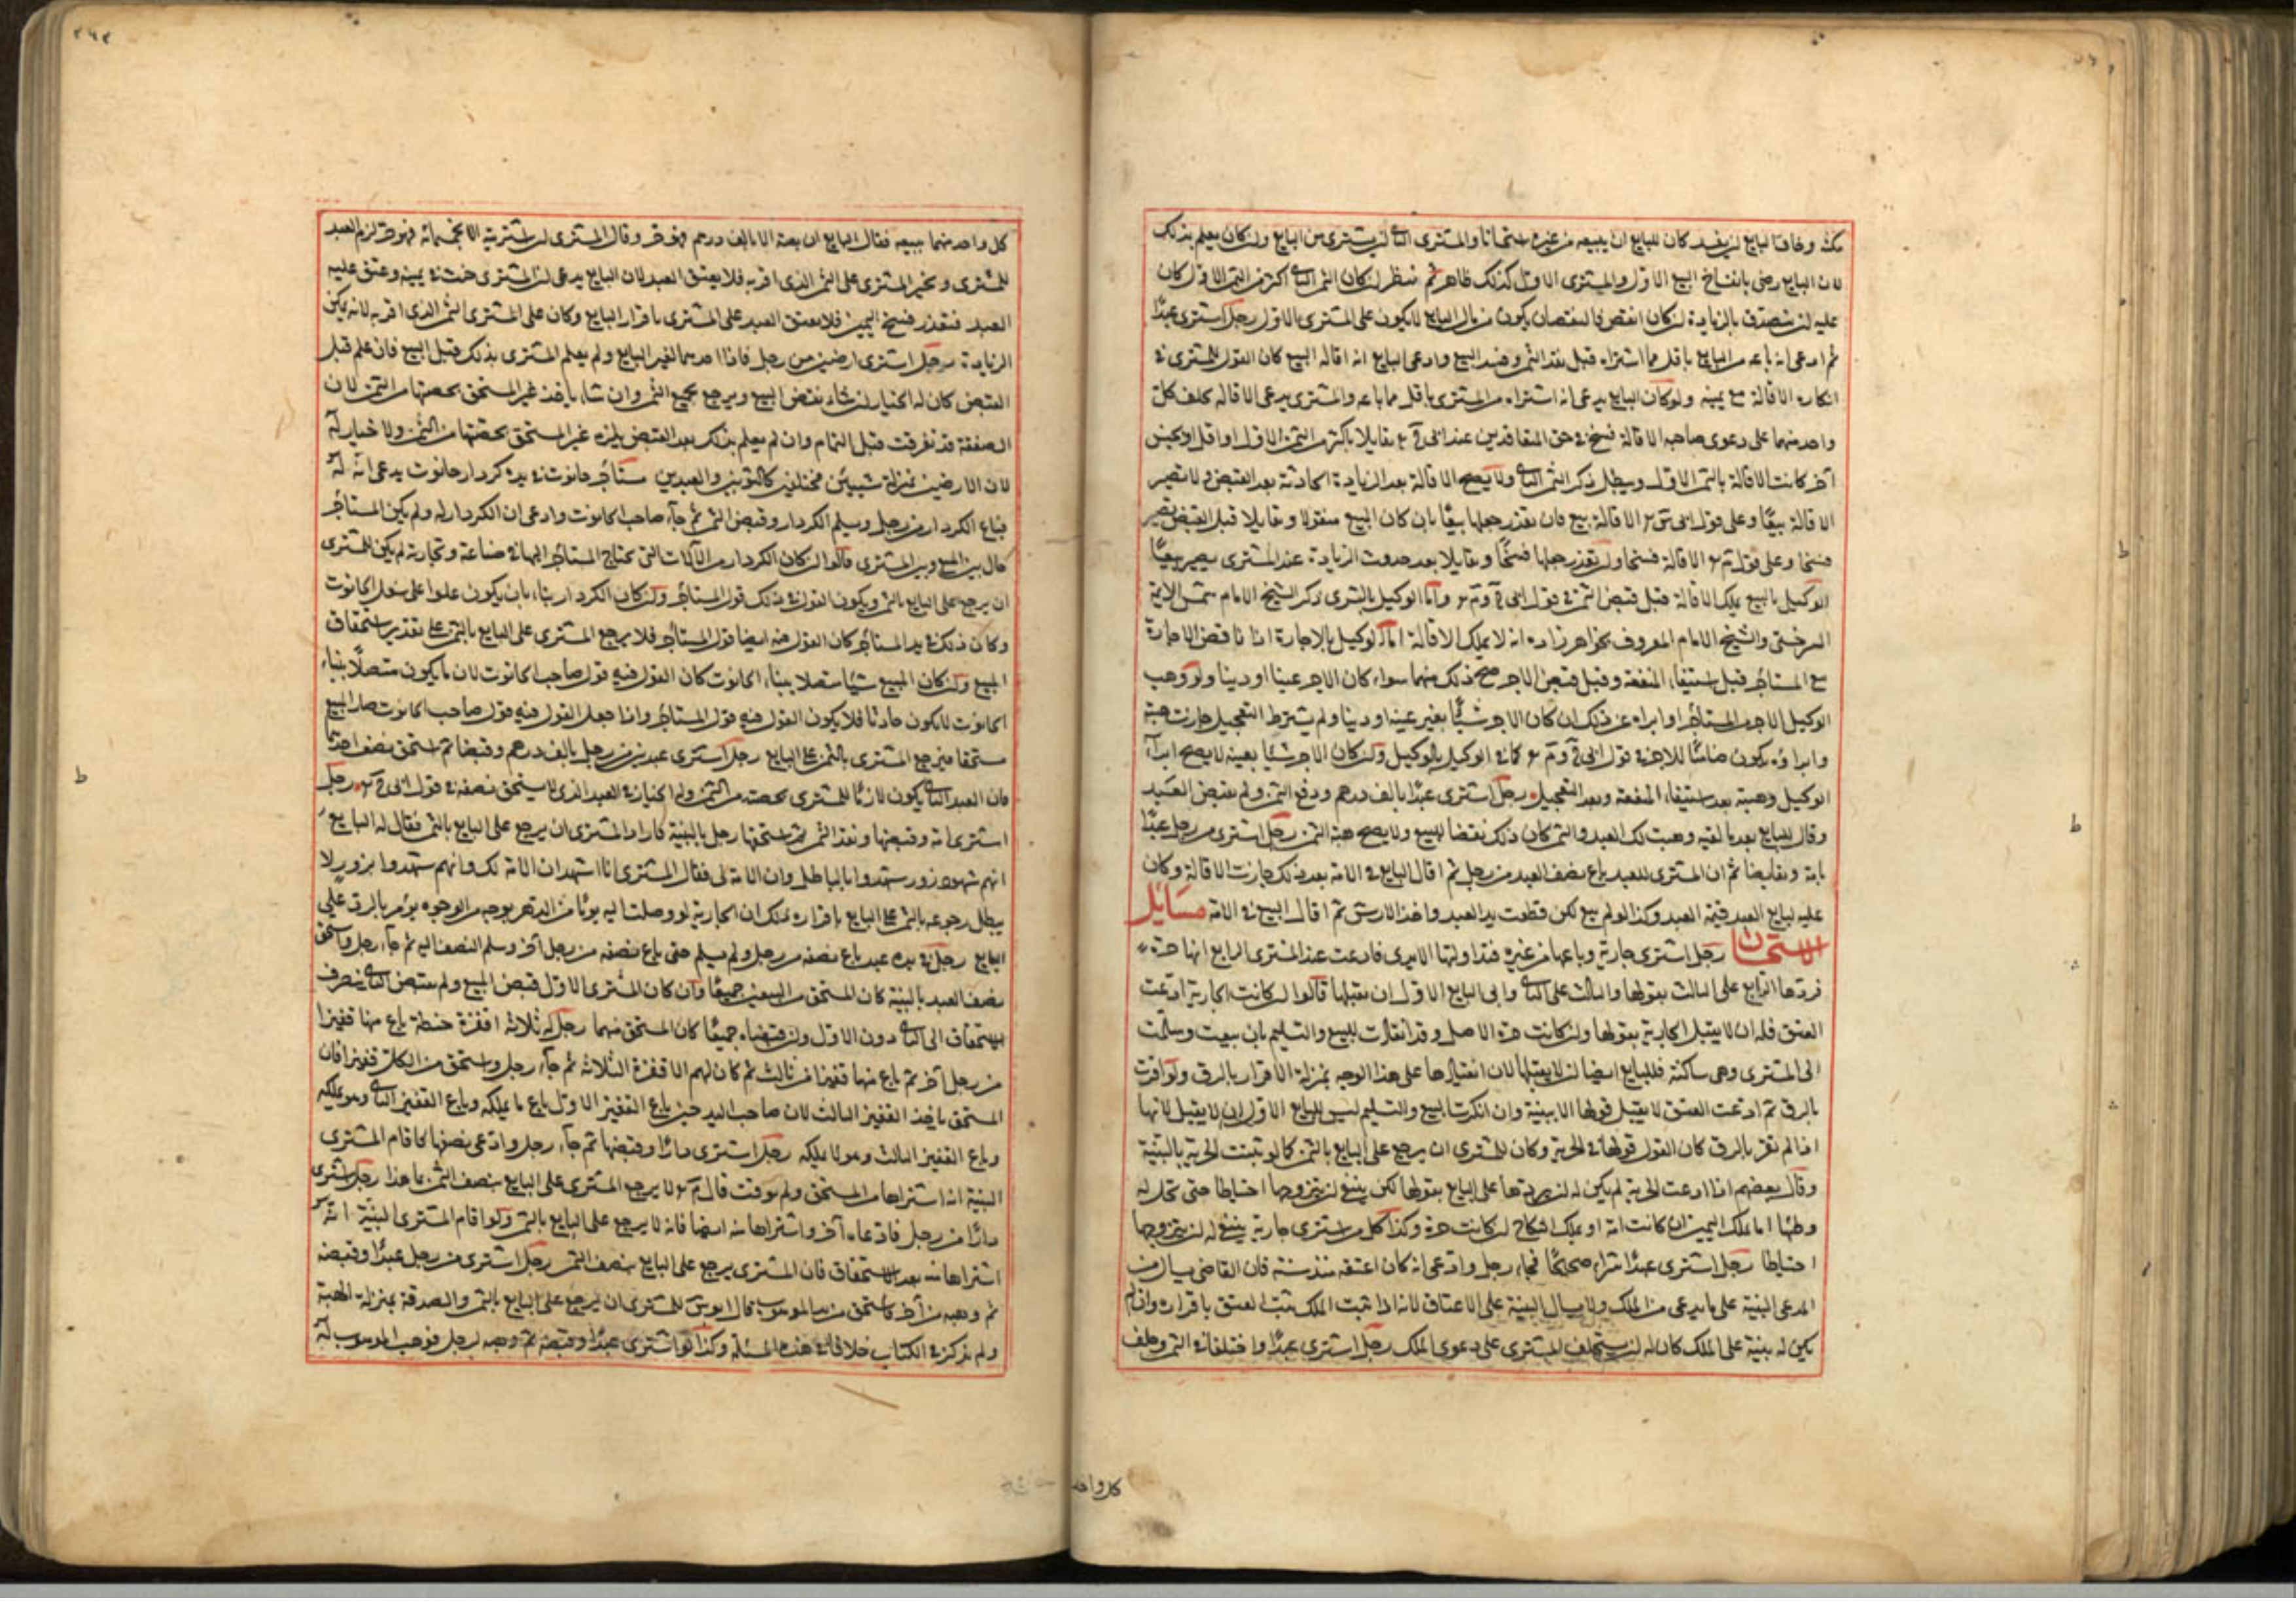 مكث وخاف البايع ان يفسد كان للبايع ان يبيعه من غيره استحسانا والمشترى الثانى ان يشترى من البايع وان كان يعلم بذلك
لان البايع رضى بانفساخ البيع الاول والمشترى الاول كذلك ظاهر ثم ينظر ان كان الثمن الثانى اكثر من الثمن الاول كان
عليه ان يتصدق بالزيادة وان كان انقص فالنقصان يكون من مال البايع لا يكون على المشترى الاول رجل اشترى عبدا
ثم ادعى انه باعه من البايع باقل مما اشتراه قبل نقد الثمن وفسد البيع وادعى البايع انه اقاله البيع كان القول للمشترى فى
انكاره الاقالة مع يمينه ولو كان البايع يدعى انه اشتراه من المشترى باقل مما باعه والمشترى يدعى الاقاله يحلف كل
واحد منهما على دعوى صاحبه الاقالة فسخ فى حق المتعاقدين عند ابى ح تقايلا باكثر من الثمن الاول او اقل او بجنس
آخر كانت الاقالة بالثمن الاول ويبطل ذكر الثمن الثانى ولا يصح الاقالة بعد الزيادة الحادثة بعد القبض ولا تصير
الاقالة بيعا وعلى قول ابى س الاقالة بيع فان تعذر جعلها بيعا بان كان المبيع منقولا وتقايلا قبل القبض تصير
فسخا وعلى قول م الاقالة فسخ وان تعذر جعلها فسخا وتقايلا بعد حدوث الزيادة عند المشترى يصير بيعا
الوكيل بالبيع يملك الاقالة قبل قبض الثمن فى قول ابى ح وم واما الوكيل بالشرى ذكر الشيخ الامام شمس الائمة
السرخسى والشيخ الامام المعروف بخواهرزاده انه لا يملك الاقالة اما الوكيل بالاجارة اذا ناقض الاجارة
مع المستاجر قبل استيفاء المنفعة وقبل قبض الاجر صح ذلك منهما سواء كان الاجر عينا او دينا ولو وهب
الوكيل الاجر للمستاجر او ابراه عن ذلك ان كان الاجر شيئا بغير عينه او دينا ولم يشترط التعجيل جازت هبته
وابراؤه ويكون ضامنا للاجر فى قول ابى ح وم كما فى الوكيل بالبيع وان كان الاجر شيئا بعينه لا يصح ابراء
الوكيل وهبته بعد استيفاء المنفعة وبعد التعجيل رجل اشترى عبدا بالف درهم ودفع الثمن ولم يقبض العبد
وقال للبايع بعد ما لقيه وهبت لك العبد والثمن كان ذلك نقضا للبيع ولا يصح هبة الثمن رجل اشترى من رجل عبدا
بامة وتقابضا ثم ان المشترى للعبد باع نصف العبد من رجل ثم اقال البايع فى الامة بعد ذلك جازت الاقالة وكان
عليه لبايع العبد قيمة العبد وكذا لو لم يبع لكن قطعت يد العبد واخذ الارش ثم اقال البيع فى الامة مسائل
الاستحقاق رجل اشترى جارية وباعها من غيره فتداولتها الايدى فادعت عند المشترى الرابع انها حرة
فردها الرابع على الثالث بقولها والثالث على الثانى وابى البايع الاول ان يقبلها قالوا ان كانت الجارية ادعت
العتق فله ان لا يقبل الجارية بقولها وان كانت حرة الاصل وقد انقادت للبيع والتسليم بان بيعت وسلمت
الى المشترى وهى ساكتة فللبايع ايضا ان لا يقبلها لان انقيادها على هذا الوجه بمنزلة الاقرار بالرق ولو اقرت
بالرق ثم ادعت العتق لا يقبل قولها الا ببينة وان انكرت البيع والتسليم ليس للبايع الاول ان لا يقبل لانها
اذا لم تقر بالرق كان القول قولها فى الحرية وكان للمشترى ان يرجع على البايع بالثمن كما لو تبينت الحرية بالبينة
وقال بعضهم اذا ادعت الحرية لم يكن له ان يردها على البايع بقولها لكن ينبغى ان يتزوجها احتياطا حتى تحل له
وطئها اما بملك اليمين ان كانت امة او بملك النكاح ان كانت حرة وكذا كل من اشترى جارية ينبغى له ان يتزوجها
احتياطا رجل اشترى عبدا شراء صحيحا فجاء رجل وادعى انه كان اعتقه منذ سنة فان القاضى يسال من
المدعى البينة على ما يدعى من الملك ولا يسال البينة على الاعتاق لانه اذا ثبت الملك ثبت العتق باقراره وان لم
يكن له بينة على الملك كان له ان يستحلف المشترى على دعوى الملك رجل اشترى عبدا واختلفا فى الثمن وحلف
كل واحد
كل واحد منهما ببيعه فقال البايع ان بعته الا بالف درهم فهو حر وقال المشترى ان اشتريته الا بخمسمائة فهو حر لزم العبد
للمشترى ويخير المشترى على الثمن الذى اقر به فلا يعتق العبد لان البايع يدعى ان المشترى حنث فى يمينه وعتق عليه
العبد فتعذر فسخ اليمين فلا يعتق العبد على المشترى باقرار البايع وكان على المشترى الثمن الذى اقر به لانه ينكر
الزيادة رجل اشترى ارضين من رجل فاذا احدهما لغير البايع ولم يعلم المشترى بذلك قبل البيع فان علم قبل
القبض كان له الخيار ان شاء نقض البيع ويرجع بجميع الثمن وان شاء ياخذ غير المستحق بحصتها من الثمن لان
الصفقة قد تفرقت قبل التمام وان لم يعلم بذلك بعد القبض يلزمه غير المستحق بحصتها من الثمن ولا خيار له
لان الارضين بمنزلة شيئين مختلفين كالثوبين والعبدين مستاجر حانوت فى يده كردار حانوت يدعى انه له
فباع الكردار من رجل وسلم الكردار وقبض الثمن ثم جاء صاحب الحانوت وادعى ان الكردار له ولم يكن المستاجر
حال بين المبيع وبين المشترى قالوا ان كان الكردار من الآلات التى يحتاج المستاجر اليها فى صناعة وتجارة لم يكن للمشترى
ان يرجع على البايع بالثمن ويكون القول فى ذلك قول المستاجر وان كان الكردار بناء بان يكون علوا على سفل الحانوت
وكان ذلك فى يد المستاجر كان القول فيه ايضا قول المستاجر فلا يرجع المشترى على البايع بالثمن على تقدير استحقاق
المبيع وان كان المبيع شيئا متصلا ببناء الحانوت كان القول فيه قول صاحب الحانوت لان ما يكون متصلا ببناء
الحانوت لا يكون حادثا فلا يكون القول فيه قول المستاجر واذا جعل القول فيه قول صاحب الحانوت صار المبيع
مستحقا فيرجع المشترى بالثمن على البايع رجل اشترى عبدين من رجل بالف درهم وقبضا ثم استحق نصف احدهما
فان العبد الثانى يكون لازما للمشترى بحصته من الثمن وله الخيار فى العبد الذى استحق نصفه فى قول ابى ح رجل
اشترى امة وقبضها ونقد الثمن ثم استحقها رجل بالبينة فاراد المشترى ان يرجع على البايع بالثمن فقال له البايع
انهم شهود زور شهدوا بالباطل وان الامة لى فقال المشترى انا اشهد ان الامة لك وانهم شهدوا بزور لا
يبطل رجوعه بالثمن على البايع باقراره بملك ان الجارية لو وصلت اليه يوما من الدهر بوجه من الوجوه يؤمر بالرد على
البايع رجل فى يده عبد باع نصفه من رجل ولم يسلم حتى باع نصفه من رجل آخر وسلم النصف اليه ثم جاء رجل واستحق
نصف العبد بالبينة كان المستحق من البيعين جميعا وان كان المشترى الاول قبض المبيع ولم يقبض الثانى ينصرف
الاستحقاق الى الثانى دون الاول وان قبضاه جميعا كان المستحق منهما رجل له ثلاثة اقفزة حنطة باع منها قفيزا
من رجل آخر ثم باع منها قفيزا من ثالث ثم كال لهم الاقفزة الثلاثة ثم جاء رجل واستحق من الكل قفيزا فان
المستحق ياخذ القفيز الثالث لان صاحب اليد حين باع القفيز الاول باع ما يملكه وباع القفيز الثانى وهو يملكه
وباع القفيز الثالث وهو لا يملكه رجل اشترى دارا وقبضها ثم جاء رجل وادعى نصفها فاقام المشترى
البينة انه اشتراها من المستحق ولم يوقت قال م لا يرجع المشترى على البايع بنصف الثمن بما هذا رجل اشترى
دارا من رجل فادعاها آخر واشتراها منه ايضا فانه لا يرجع على البايع بالثمن ولو اقام المشترى البينة انه
اشتراها منه بعد الاستحقاق فان المشترى يرجع على البايع بنصف الثمن رجل اشترى من رجل عبدا وقبضه
ثم وهبه من آخر فاستحق من يد الموهوب قال ابو س للمشترى ان يرجع على البايع بالثمن والصدقة بمنزلة الهبة
ولم يذكر فى الكتاب خلافا فى هذه المسئلة وكذا لو اشترى عبدا وقبضه ثم وهبه لرجل فوهب الموهوب له